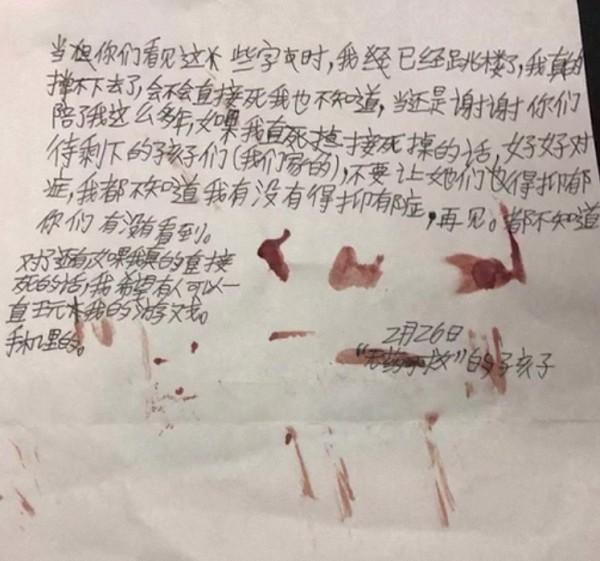 当但你们看见这些字文时，我经已经跳楼了，我真的
撑不下去了，会不会直接死我也不知道，当还是谢谢你们
陪了我这么多年，如果我直死接死掉的话，好好对
待剩下的孩子们（我们家的），不要让她们也得抑郁
症，我都不知道我有没有得抑郁症，再见。都不知道
你们有没有看到。
对了还有如果我真的直接
死的话，我希望有人可以一
直玩我的游戏。
手机里的。
2月26日
的子孩子